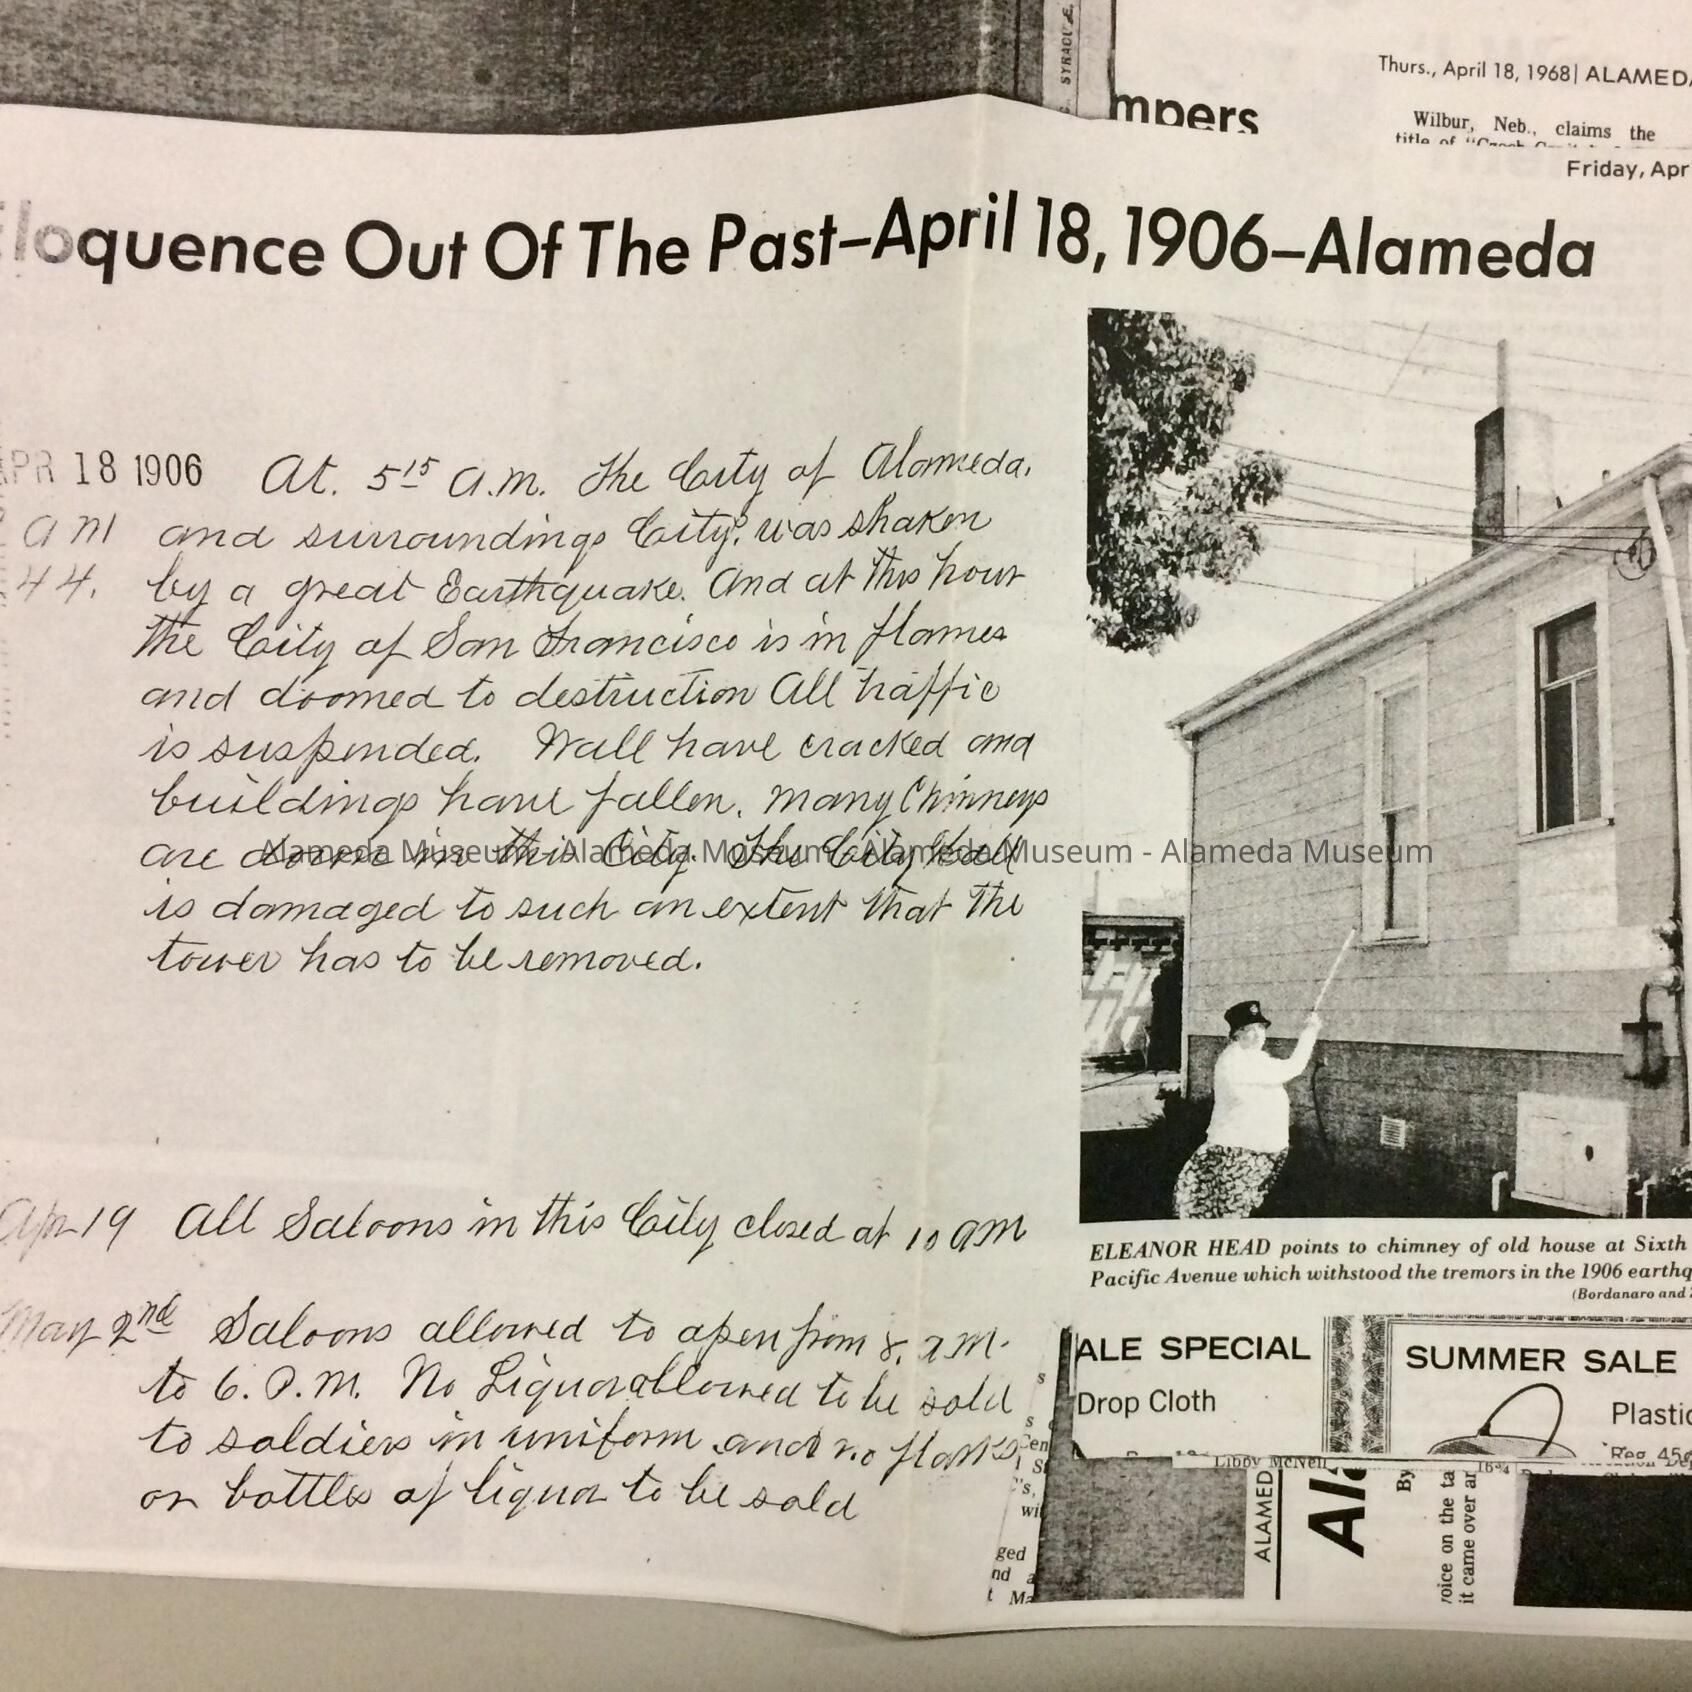 SYRACUSE,
mpers
Thurs., April 18, 1968| ALAMEDA
Wilbur, Neb., claims the
title of
Friday, Apr
Eloquence Out Of The Past–April 18, 1906–Alameda
APR 18 1906 At. 5 15 A.M. The City of Alameda.
AM and surroundings City's was shaken
44. by a great Earthquake. And at this hour
the City of San Francisco is in flames
and doomed to destruction All traffic
is suspended. Wall have cracked and
buildings have fallen. Many Chimneys
are down in this City. The City Hall
Alameda Museum - Alameda Museum - Alameda Museum - Alameda Museum
is damaged to such an extent that the
tower has to be removed.
Apr 19 All Saloons in this City closed at 10 AM
May 2nd Saloons allowed to open from 8. A M.
to 6. P.M. No Liquor allowed to be sold
to soldiers in uniform and no flasks
or bottles of liquor to be sold
ELEANOR HEAD points to chimney of old house at Sixth
Pacific Avenue which withstood the tremors in the 1906 earthq
(Bordanaro and
ALE SPECIAL
Drop Cloth
SUMMER SALE
Plastic
Reg. 45¢
Libby McNeil
16¾
ALAMED
Ala
By
voice on the ta
it came over ar
s
s
Cen
wi
ged
nd a
t Ma